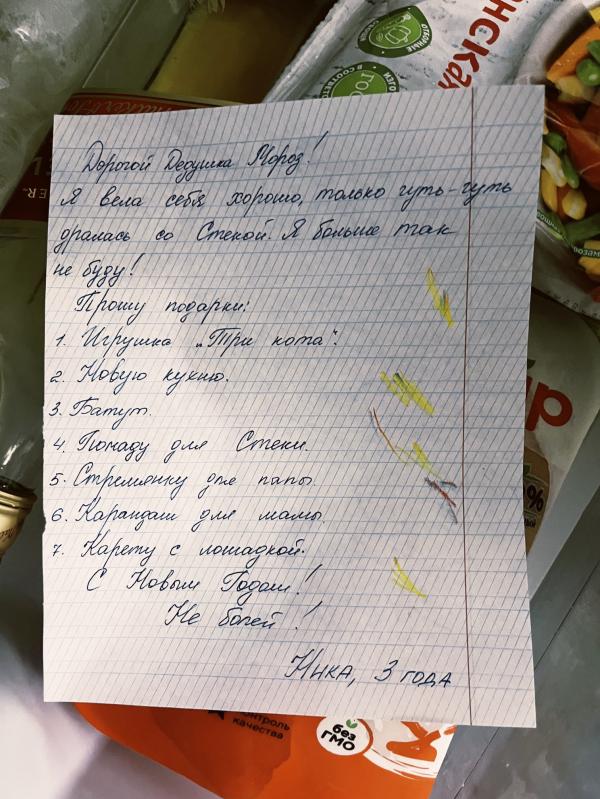 Дорогой Дедушка Мороз!
Я вела себя хорошо, только чуть-чуть
дралась со Стекой. Я больше так
не буду!
Прошу подарки:
1. Игрушка „Три кота“.
2. Новую кухню.
3. Батут.
4. Помаду для Стеки.
5. Стремянку для папы.
6. Карандаш для мамы.
7. Карету с лошадкой.
С Новым Годом!
Не болей!
Ника, 3 года
контроль
качества
без
ГМО
ОТБОРНЫЕ